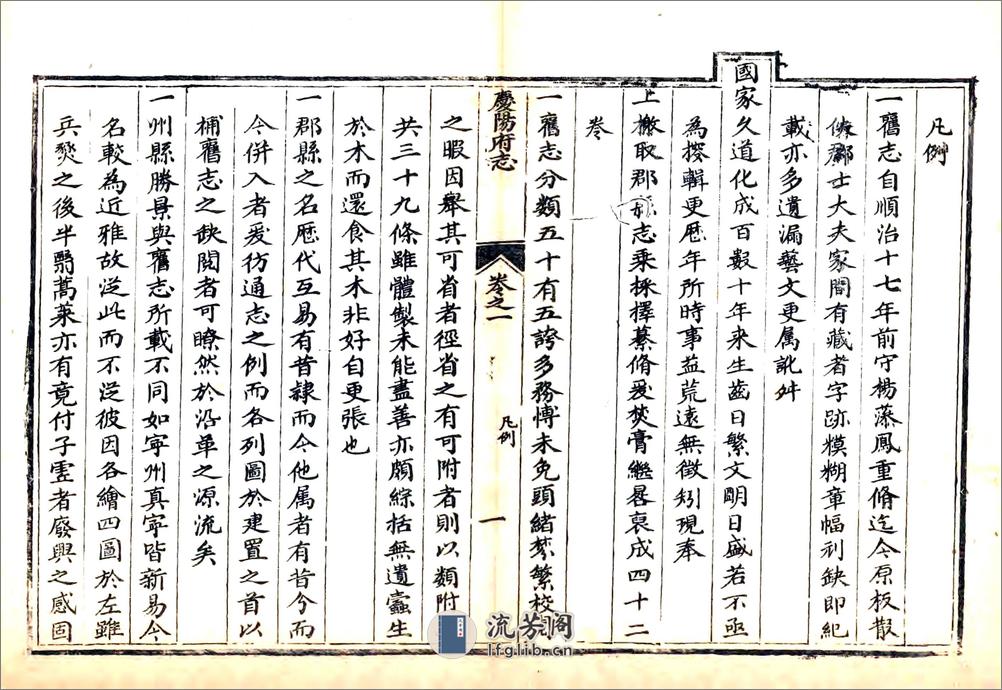 凡例
一舊志自順治十七年前守楊藻鳳重脩迄今原板散
佚郡士大夫家間有藏者字跡糢糊章幅刓缺即紀
載亦多遺漏藝文更属訛舛
國家久道化成百數十年来生齒日繁文明日盛若不亟
為搜輯更歷年所時事益荒遠無徵矧現奉
上檄取郡志乘採擇纂脩爰焚膏繼晷裒成四十二
卷
一舊志分類五十有五誇多務博未免頭緒棼繁校
慶陽府志
卷之一
凡例
一
之暇因舉其可省者徑省之有可附者則以類附
共三十九條雖體製未能盡善亦頗綜括無遺蠹生
於木而還食其木非好自更張也
一郡縣之名歷代互易有昔隸而今他属者有昔今而
今併入者爰彷通志之例而各列圖於建置之首以
補舊志之缺閱者可瞭然於沿革之源流矣
一州縣勝景與舊志所載不同如寧州真寧皆新易今
名較為近雅故從此而不從彼因各繪四圖於左雖
兵燹之後半翳蒿萊亦有竟付子虛者廢興之感固
流芳阁
lfglib.cn